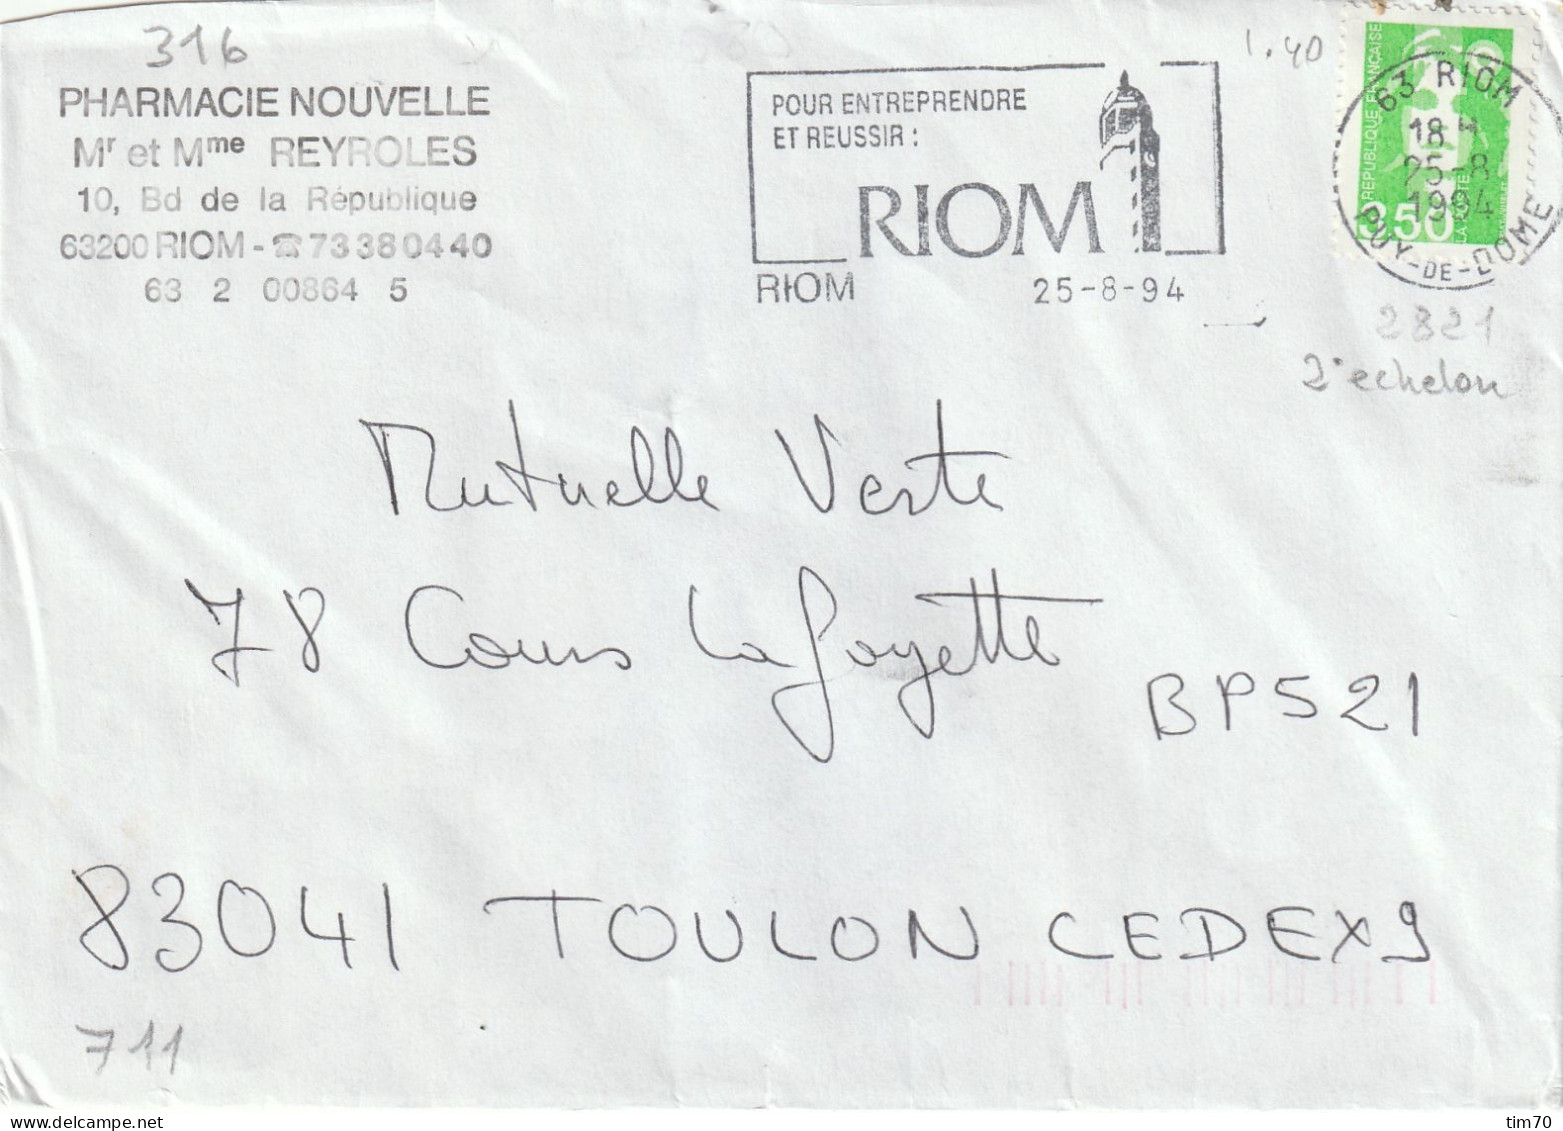 316
PHARMACIE NOUVELLE
Mr et Mme REYROLES
10, Bd de la République
63200 RIOM - ☎ 73 38 04 40
63 2 00864 5
POUR ENTREPRENDRE
ET REUSSIR :
RIOM
RIOM 25-8-94
1.40
RÉPUBLIQUE FRANÇAISE
3,50
LA POSTE
63 RIOM
18 H
25-8
1994
PUY-DE-DOME
2821
2° echelon
Mutuelle Verte
78 Cours Lafayette
BP521
83041 TOULON CEDEX 9
711
tim70